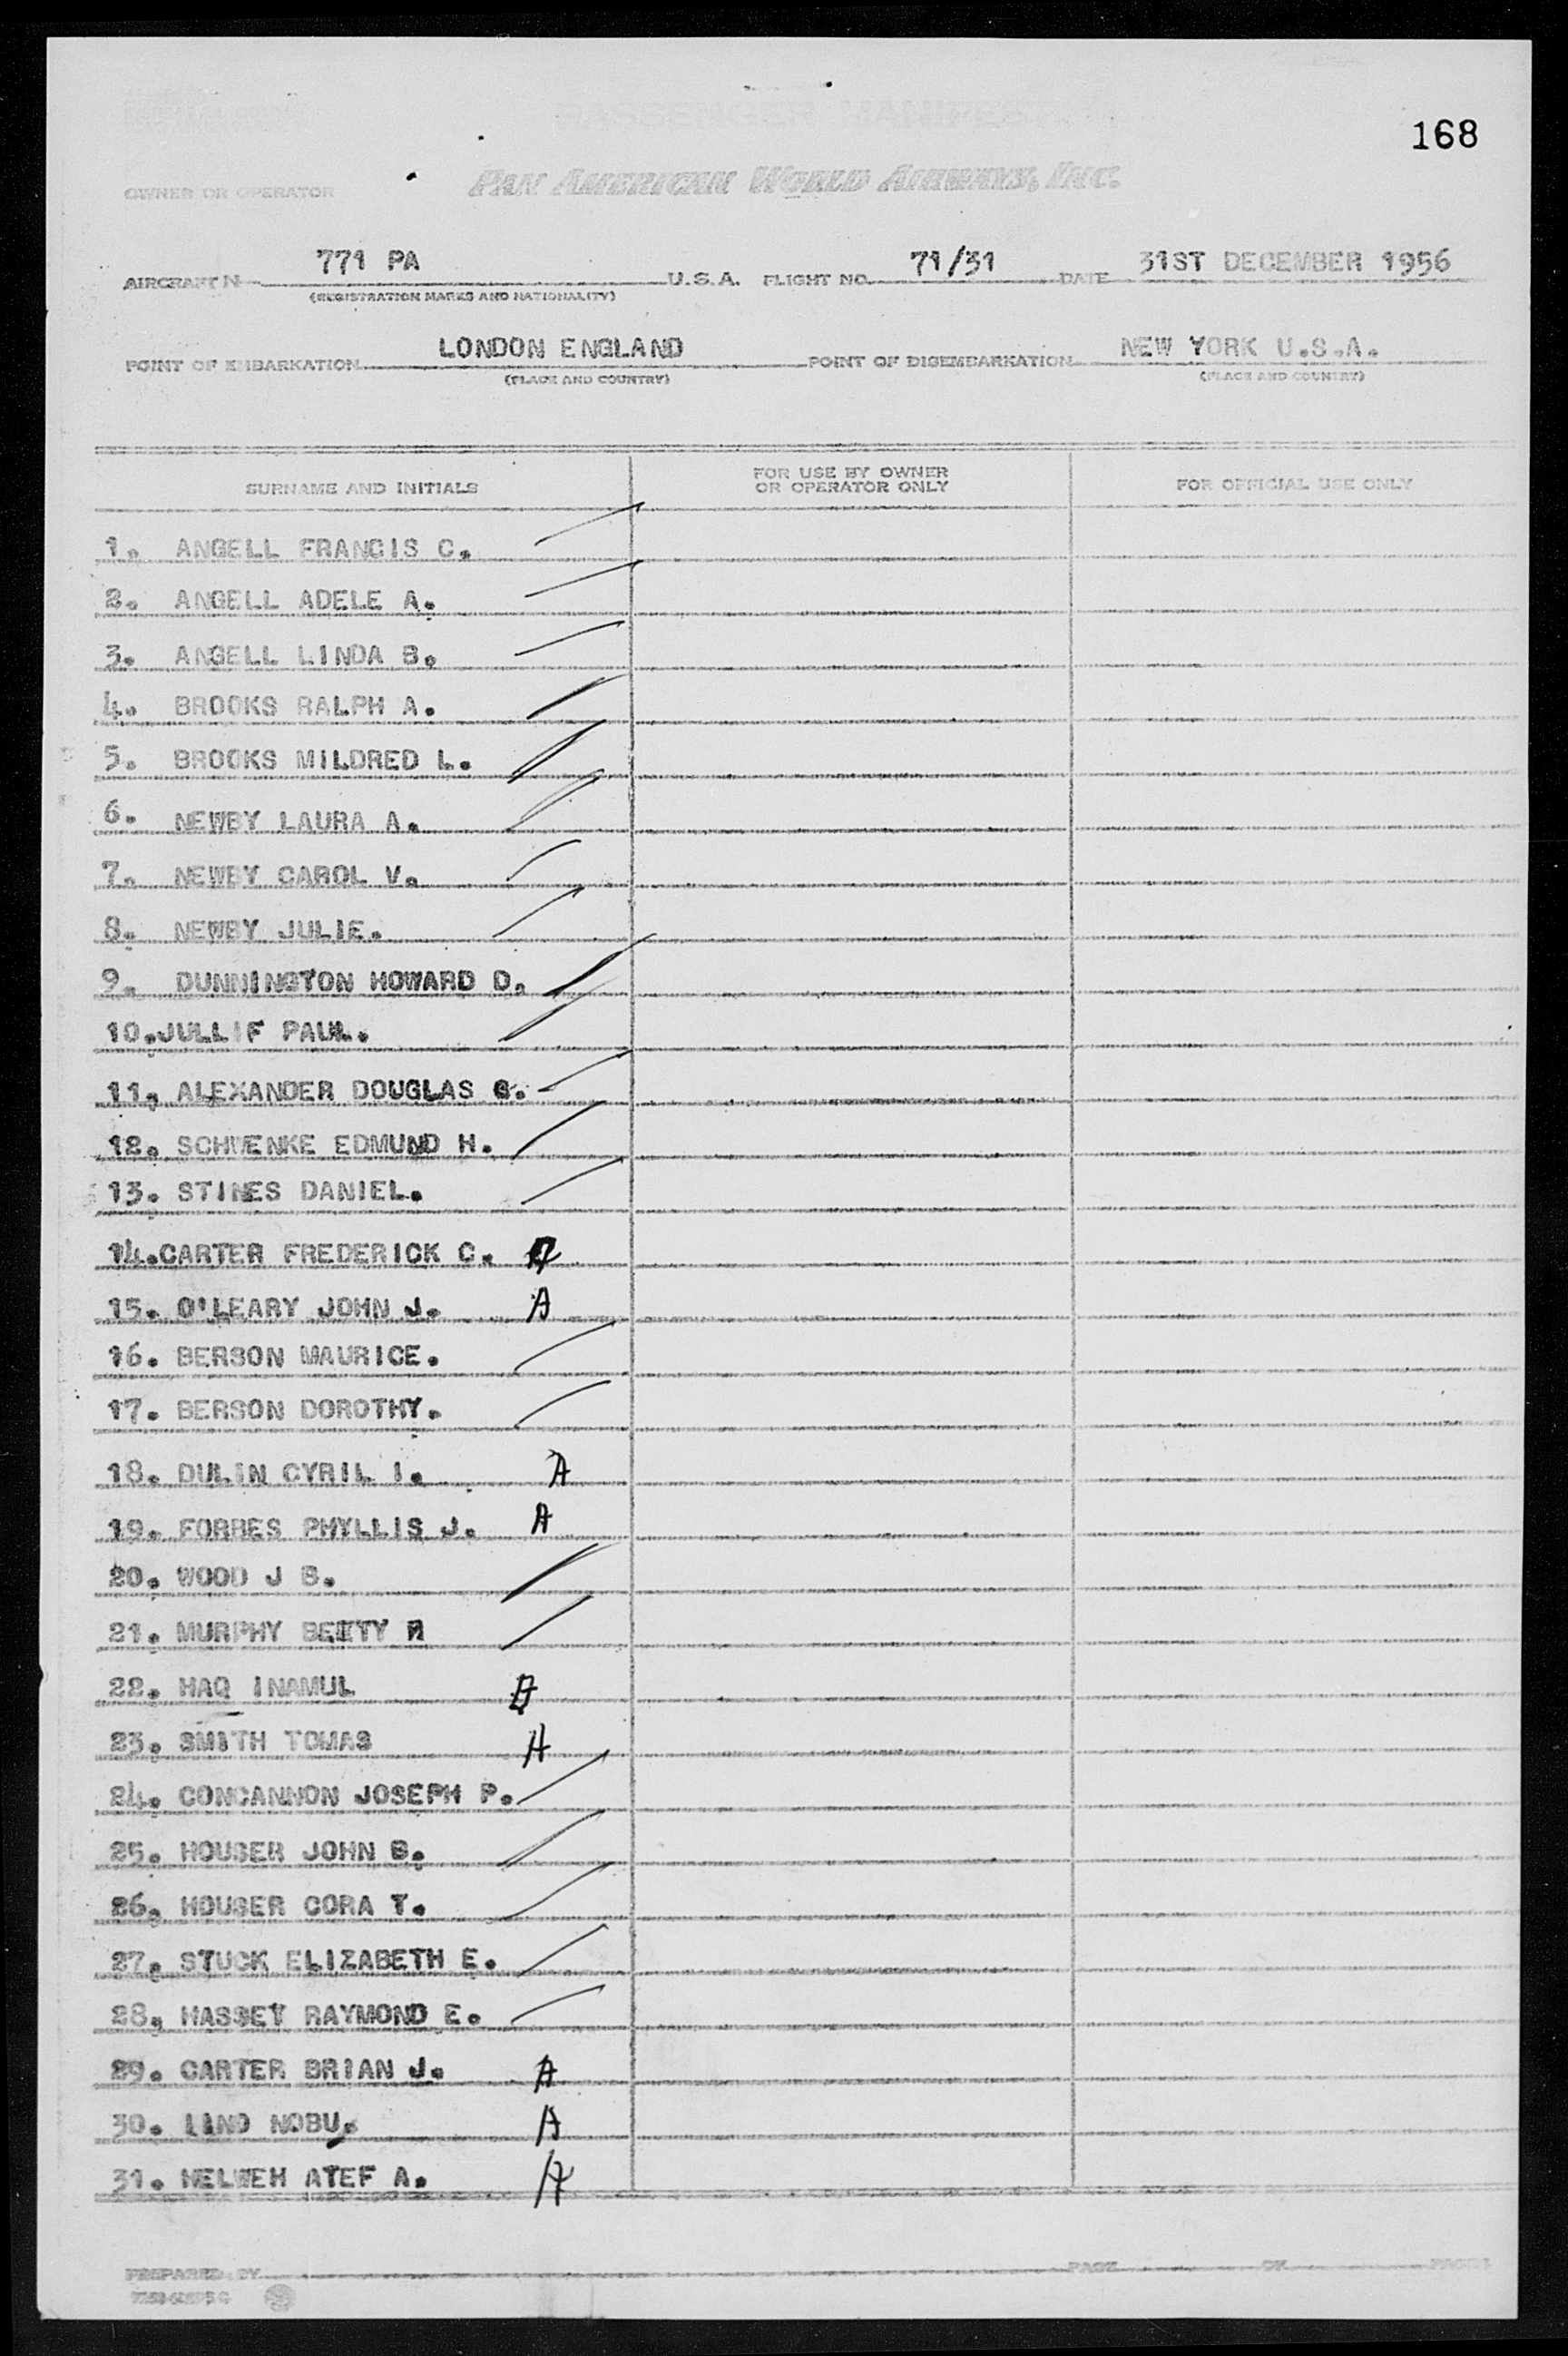 PASSENGER MANIFEST
168
OWNER OR OPERATOR PAN AMERICAN WORLD AIRWAYS, INC.
AIRCRAFT N 771 PA U.S.A. FLIGHT NO. 71/31 DATE 31ST DECEMBER 1956
(REGISTRATION MARKS AND NATIONALITY)
POINT OF EMBARKATION LONDON ENGLAND POINT OF DISEMBARKATION NEW YORK U.S.A.
(PLACE AND COUNTRY) (PLACE AND COUNTRY)
SURNAME AND INITIALS FOR USE BY OWNER OR OPERATOR ONLY FOR OFFICIAL USE ONLY
1. ANGELL FRANCIS C.
2. ANGELL ADELE A.
3. ANGELL LINDA B.
4. BROOKS RALPH A.
5. BROOKS MILDRED L.
6. NEWBY LAURA A.
7. NEWBY CAROL V.
8. NEWBY JULIE.
9. DUNNINGTON HOWARD D.
10. JULLIF PAUL.
11. ALEXANDER DOUGLAS G.
12. SCHWENKE EDMUND H.
13. STINES DANIEL.
14. CARTER FREDERICK C. A
15. O'LEARY JOHN J. A
16. BERSON MAURICE.
17. BERSON DOROTHY.
18. DULIN CYRIL I. A
19. FORBES PHYLLIS J. A
20. WOOD J B.
21. MURPHY BETTY R
22. HAQ INAMUL
23. SMITH TOMAS A
24. CONCANNON JOSEPH P.
25. HOUSER JOHN B.
26. HOUSER CORA T.
27. STUCK ELIZABETH E.
28. HASSET RAYMOND E.
29. CARTER BRIAN J. A
30. IINO NOBU. A
31. HELWEH ATEF A. A
PREPARED BY PAGE OF PAGES